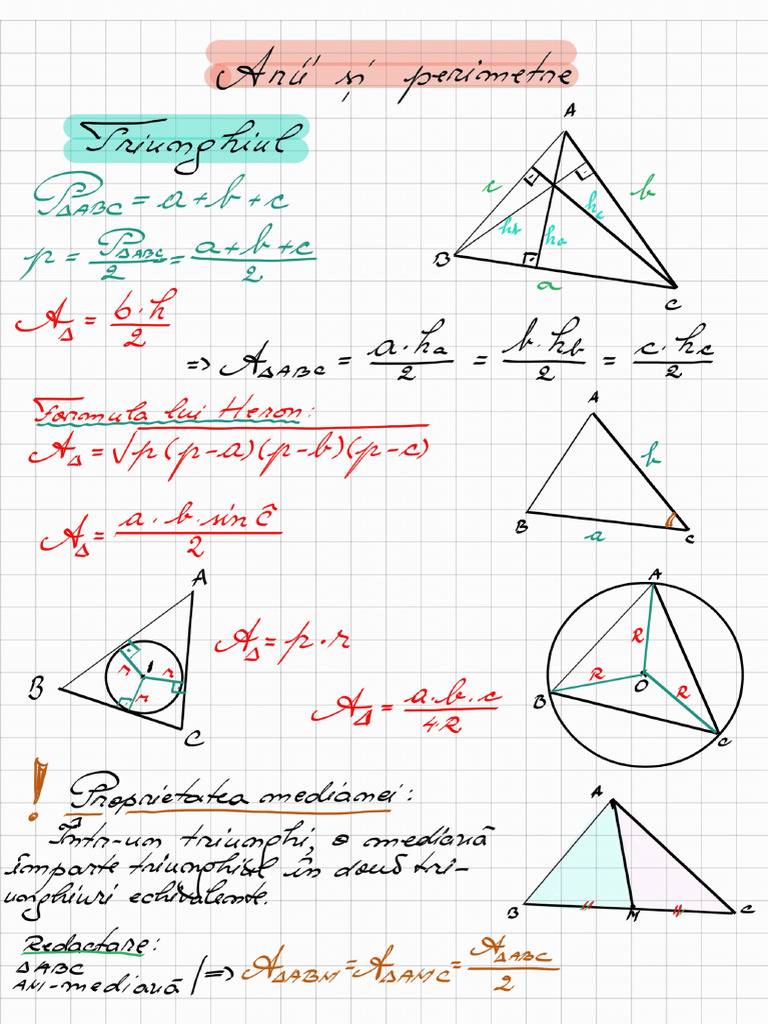 Arii și perimetre
Triunghiul
P△ABC = a + b + c
p = P△ABC/2 = (a + b + c)/2
A△ = (b · h)/2
=> A△ABC = (a · ha)/2 = (b · hb)/2 = (c · hc)/2
A
c
b
hb
ha
hc
B
a
C
Formula lui Heron:
A△ = √p(p-a)(p-b)(p-c)
A△ = (a · b · sin Ĉ)/2
A
b
B
a
C
A
B
C
I
r
r
r
A△ = p · r
A△ = (a · b · c)/(4R)
A
R
R
R
O
B
C
! Proprietatea medianei:
Într-un triunghi, o mediană
împarte triunghiul în două tri-
unghiuri echivalente.
A
B
M
C
Redactare:
△ABC
AM - mediană | => A△ABM = A△AMC = A△ABC/2